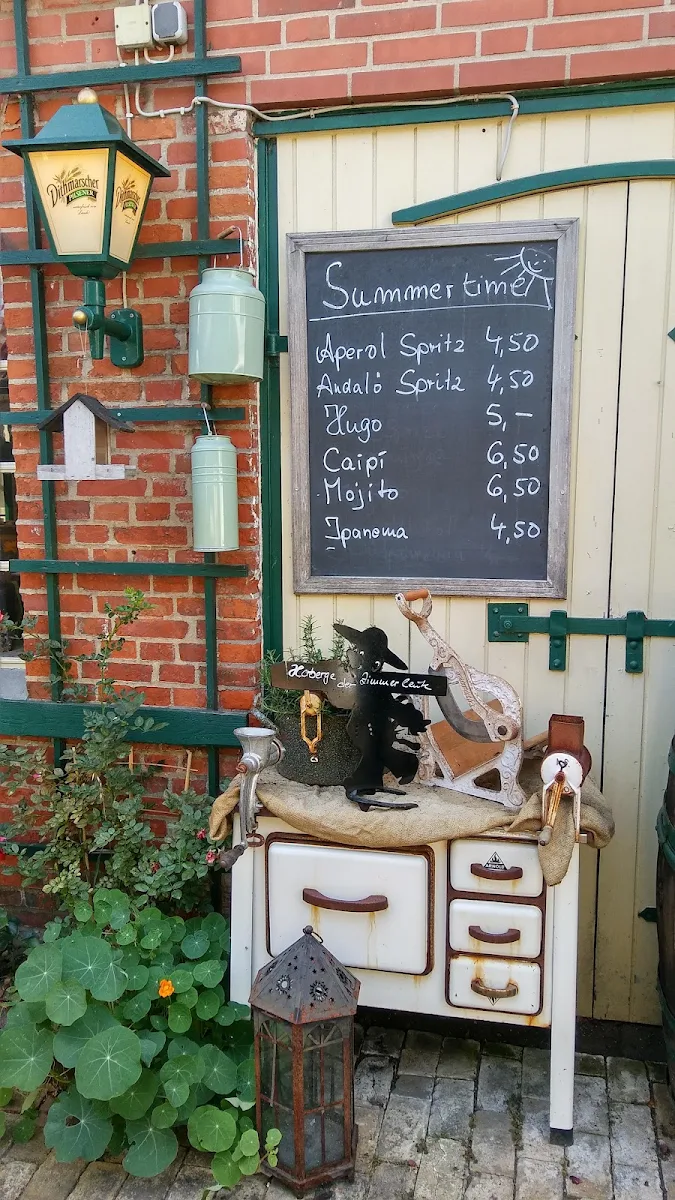 Dithmarscher
PILSENER
Dithmarscher
Summertime
Aperol Spritz 4,50
Andalö Spritz 4,50
Hugo 5,-
Caipi 6,50
Mojito 6,50
Ipanema 4,50
Herberge
der Zimmerleute